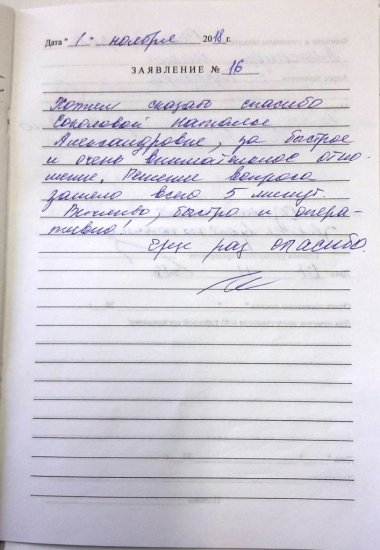 Дата "1" ноября 2018 г.
ЗАЯВЛЕНИЕ № 16
Хотим сказать спасибо
Соколовой Наталье
Александровне, за быстрое
и очень внимательное отно-
шение. Решение вопроса
заняло всего 5 минут.
Вежливо, быстро и опера-
тивно!
Еще раз спасибо.